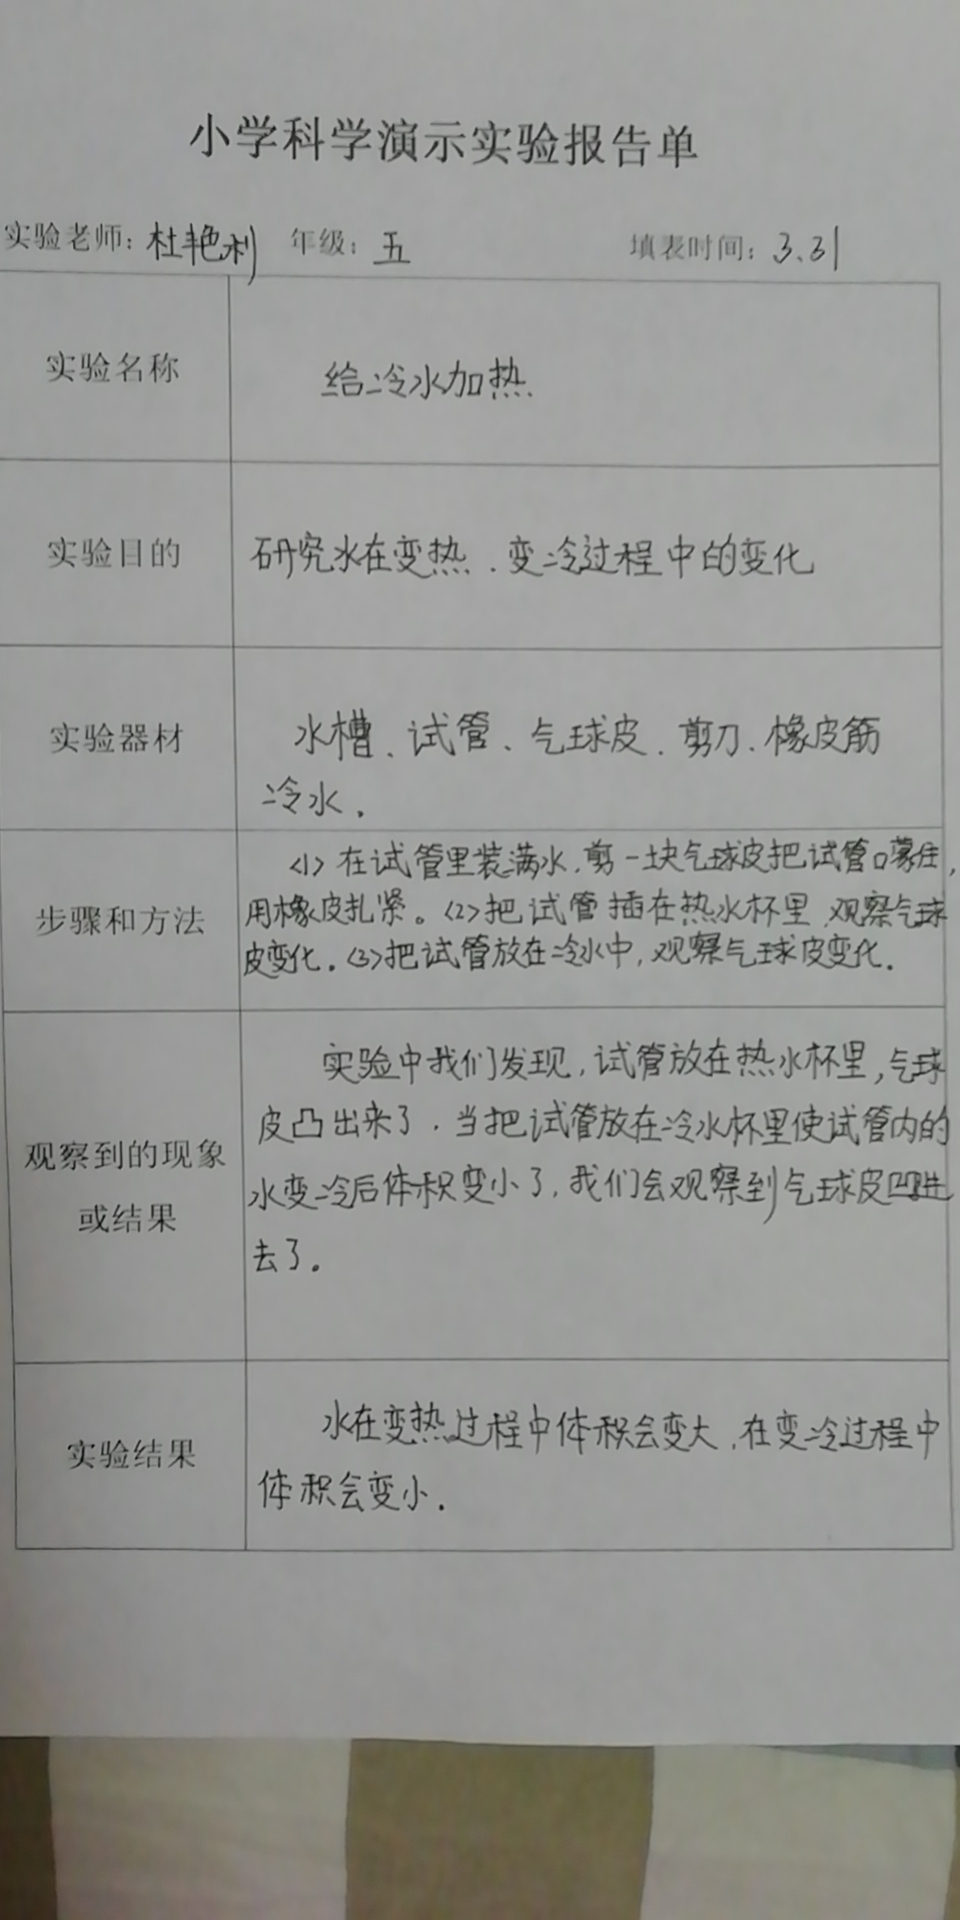 小学科学演示实验报告单
实验老师：杜艳利 年级：五 填表时间：3.31
实验名称
给冷水加热
实验目的
研究水在变热、变冷过程中的变化
实验器材
水槽、试管、气球皮、剪刀、橡皮筋
冷水.
步骤和方法
<1>在试管里装满水,剪一块气球皮把试管口蒙住,
用橡皮扎紧。<2>把试管插在热水杯里 观察气球
皮变化.<3>把试管放在冷水中,观察气球皮变化.
观察到的现象
或结果
实验中我们发现,试管放在热水杯里,气球
皮凸出来了.当把试管放在冷水杯里使试管内的
水变冷后体积变小了,我们会观察到气球皮凹进
去了.
实验结果
水在变热过程中体积会变大,在变冷过程中
体积会变小.